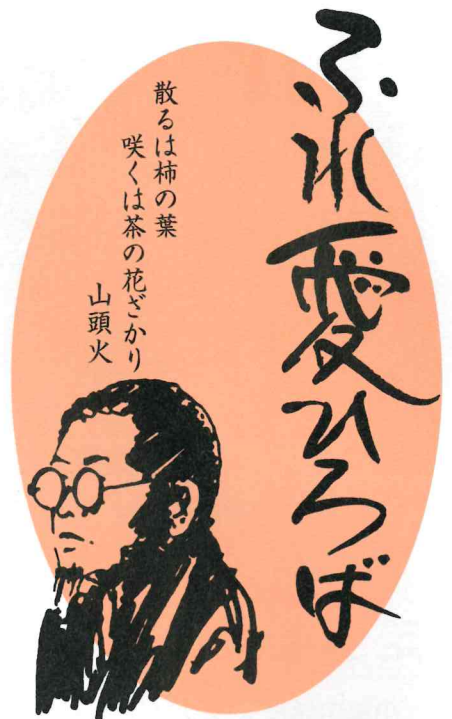 ふれ愛ひろば
散るは柿の葉
咲くは茶の花ざかり
山頭火